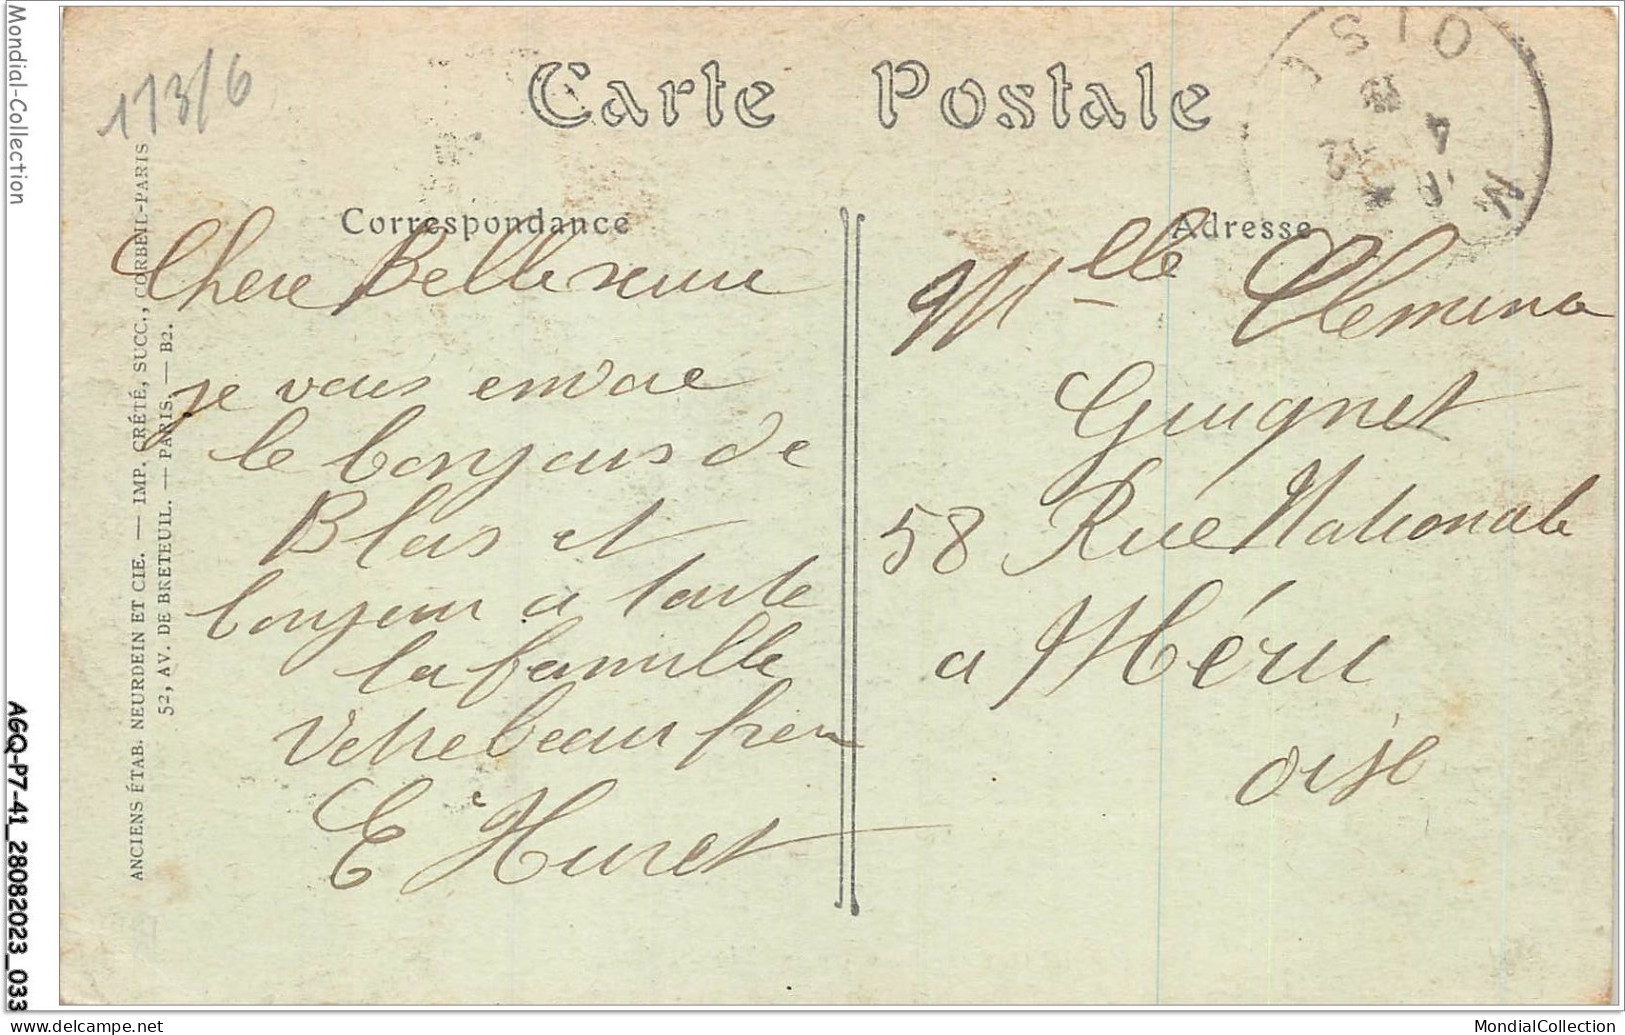 Mondial-Collection
AGQ-P7-41_28082023_033
113/6
Carte Postale
Correspondance
Chere Belle seur
je vous envoie
le bonjour de
Blois et
bonjour a toute
la famille
Votre beau frere
E Huret
Adresse
Mlle Clemena
Guignet
58 Rue Nationale
a Méru
oise
ANCIENS ÉTAB. NEURDEIN ET CIE. — IMP. CRÉTÉ, SUCC., CORBEIL-PARIS
52, AV. DE BRETEUIL. — PARIS. — B2.
www.delcampe.net
MondialCollection